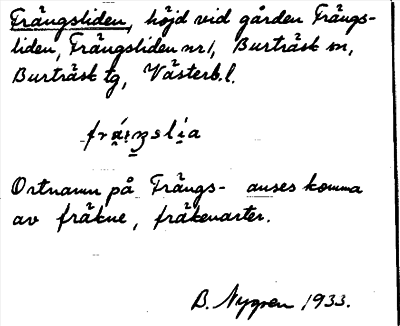 Frängsliden, höjd vid gården Frängs-
liden, Frängsliden nr 1, Burträsk sn,
Burträsk tg, Västerb. l.
Ortnamn på Frängs- anses komma
av fräkne, fräkenarter.
B. Nygren 1933.